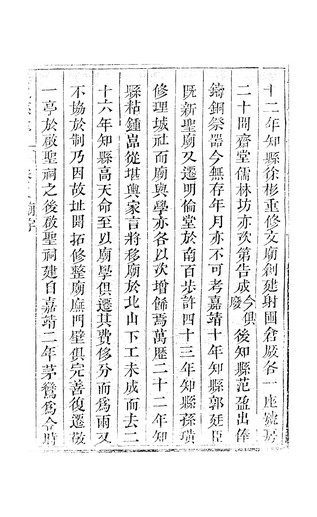 十二年知縣徐彬重修文廟創建射圃倉厫各一座號房
二十間齋堂儒林坊亦次第告成今俱廢後知縣范盈出俸
鑄銅祭器今無存年月亦不可考嘉靖十年知縣郭廷臣
既新聖廟又遷明倫堂於南百步許四十三年知縣孫璜
修理城社而廟與學亦各以次增餙焉萬歷二十二年知
縣粘鍾嵒從堪輿家言將移廟於北山下工未成而去二
十六年知縣高天命至以廟學俱遷其費侈分而為兩又
不協於制乃因故址開拓修整廟廡門壁俱完善復遷敬
一亭於啟聖祠之後啟聖祠建自嘉靖二年茅鷟為令時